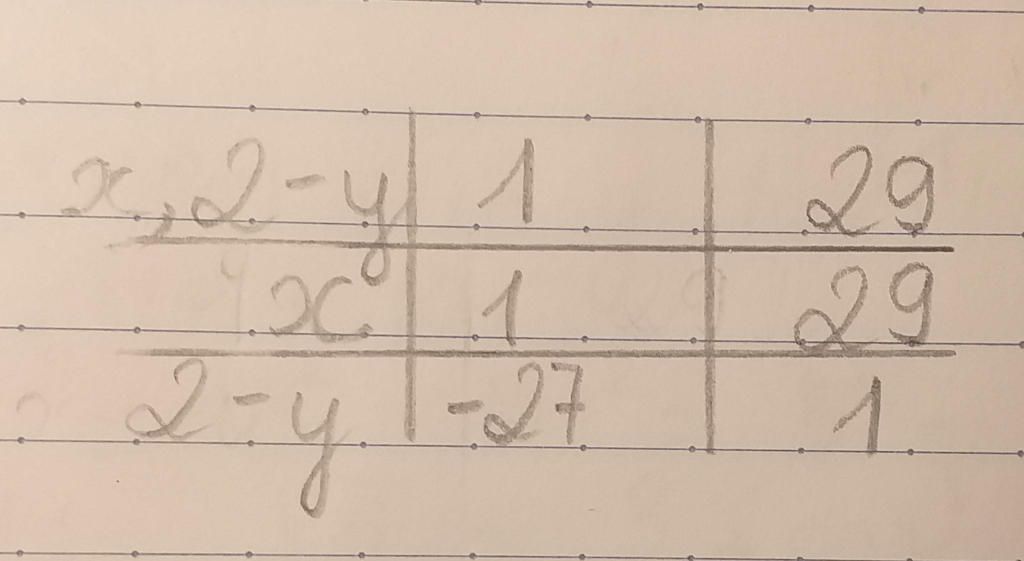 x, 2-y 1 29
x 1 29
2-y -27 1